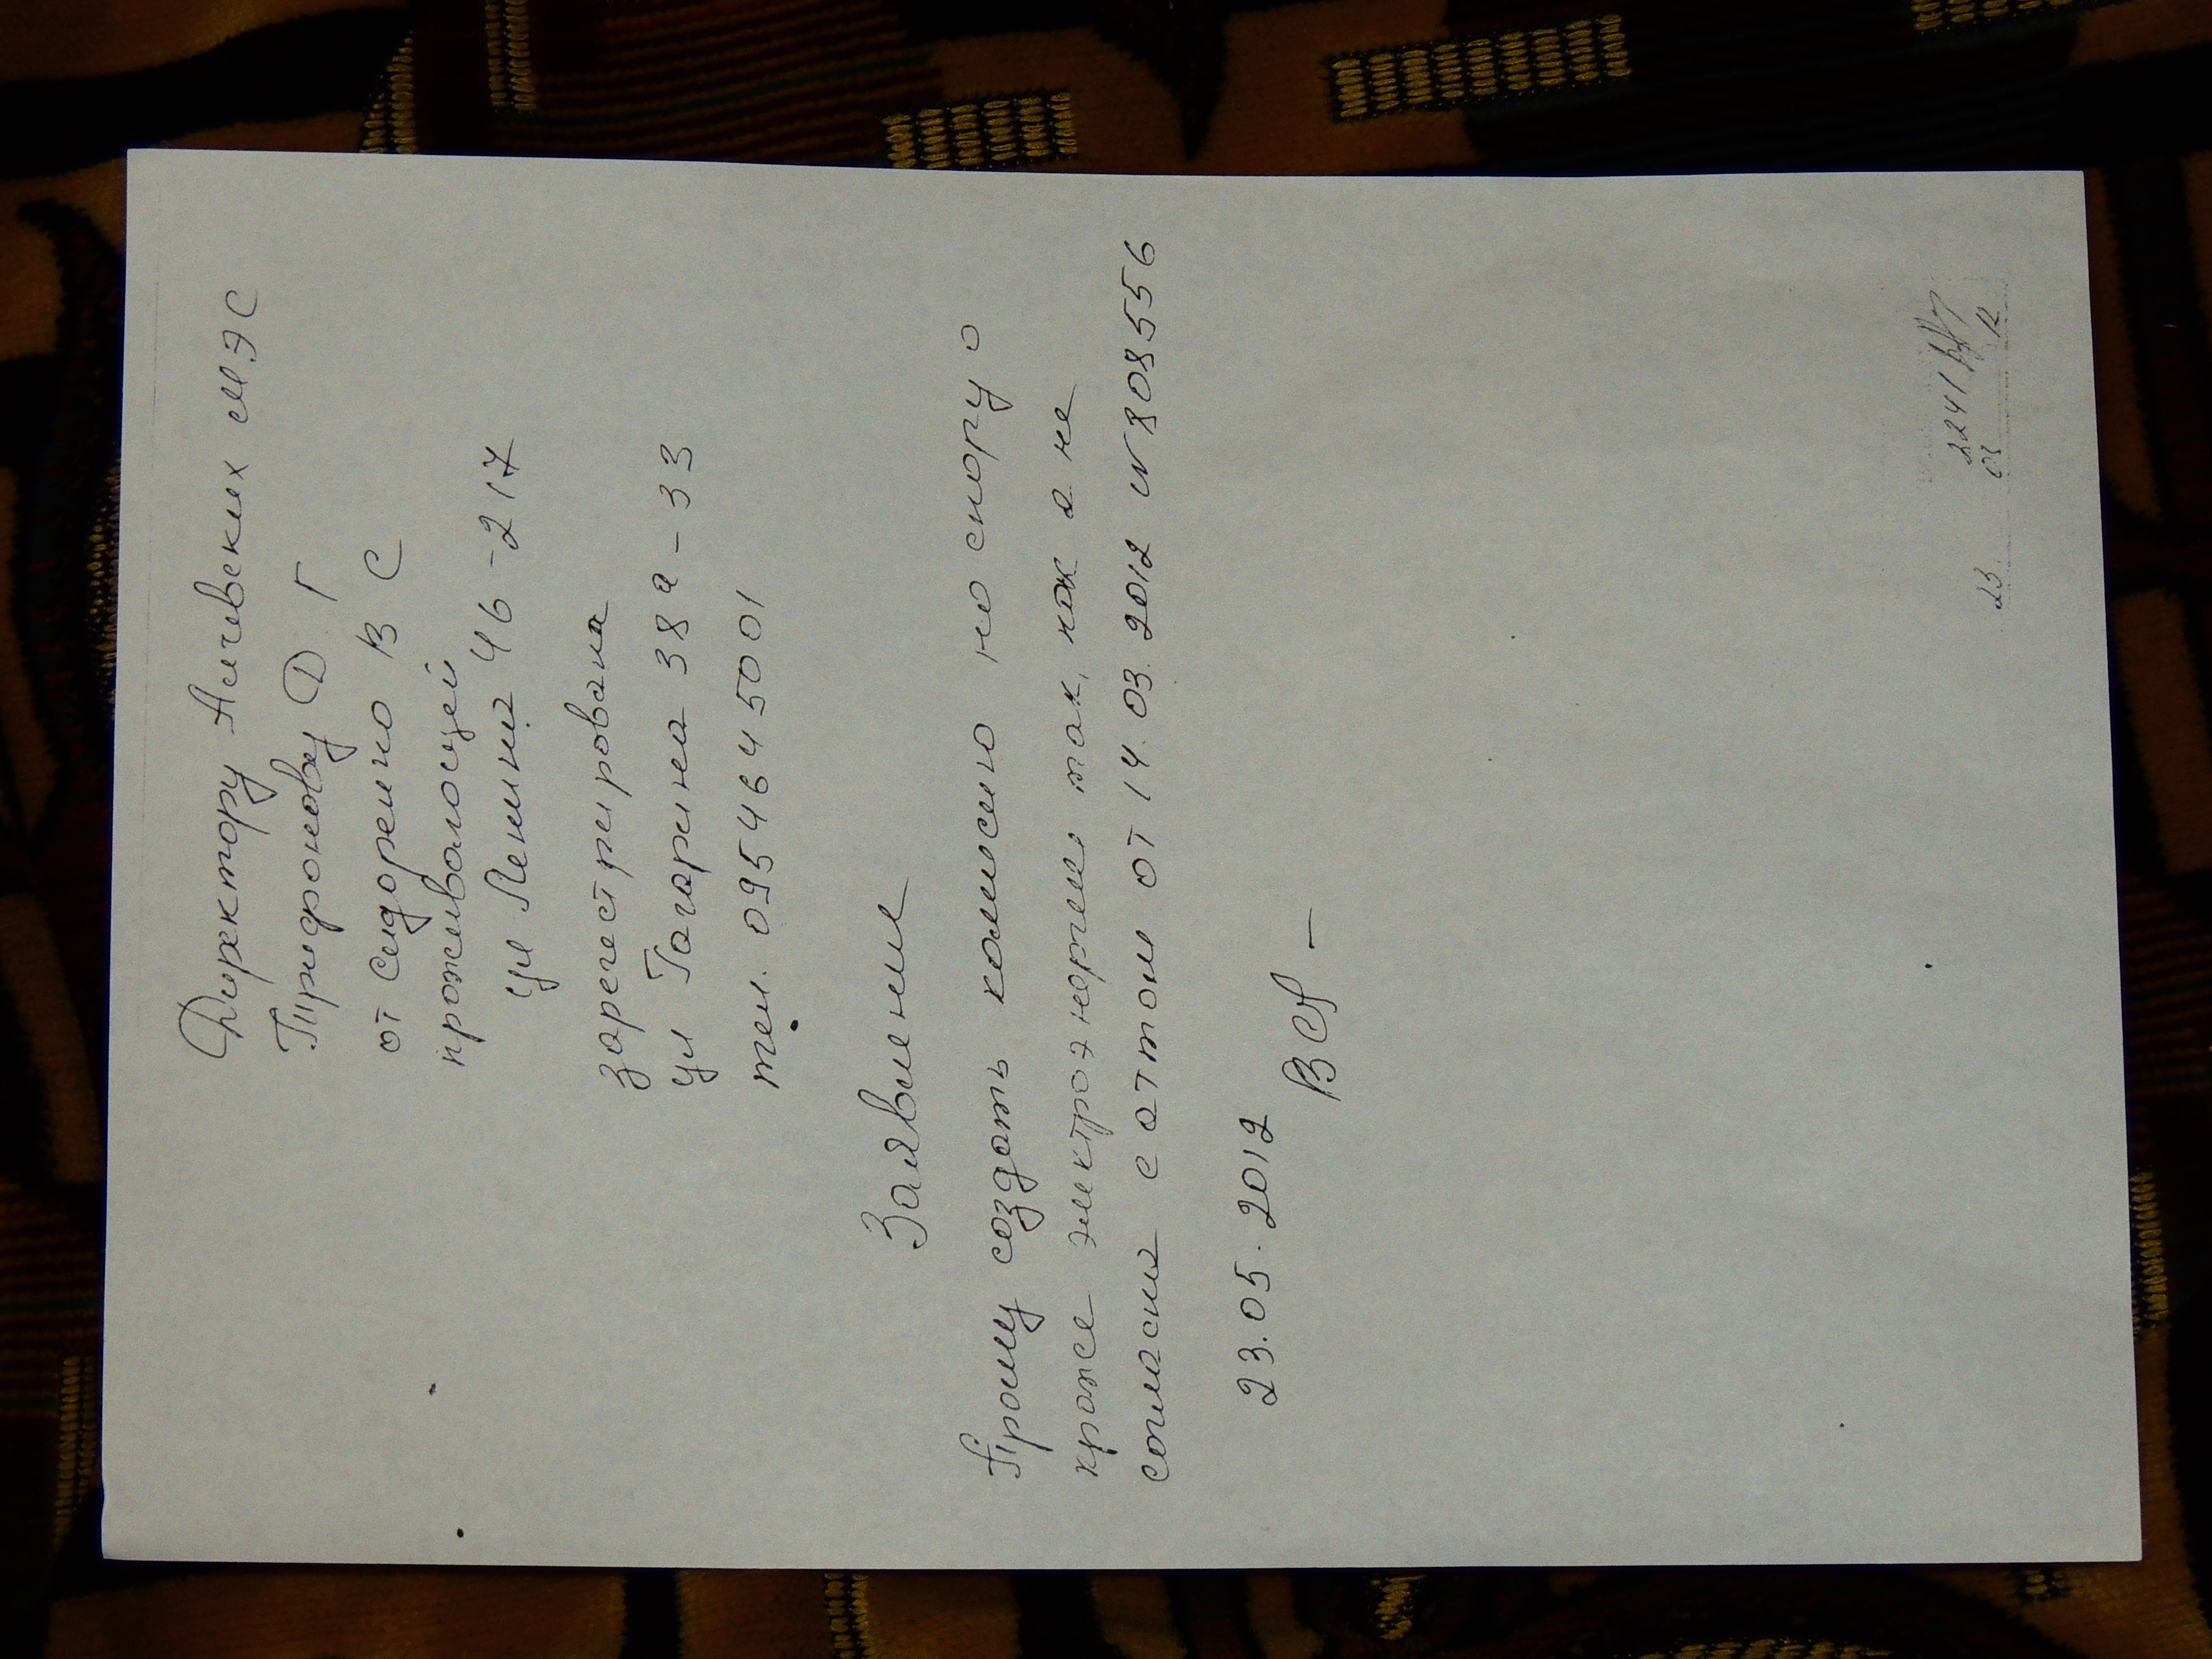 Директору Алчевских МЭС
Трифонову Д. Г
от Сидоренко В С
проживающей
ул Ленина 46-217
зарегестрирована
ул Гагарина 38а-33
тел. 0954645001
Заявление
Прошу создать комисию по спору о
краже электроэнергии так, как я не
согласна с актом от 14.03.2012 N808556
23.05.2012
2241
23 05 12